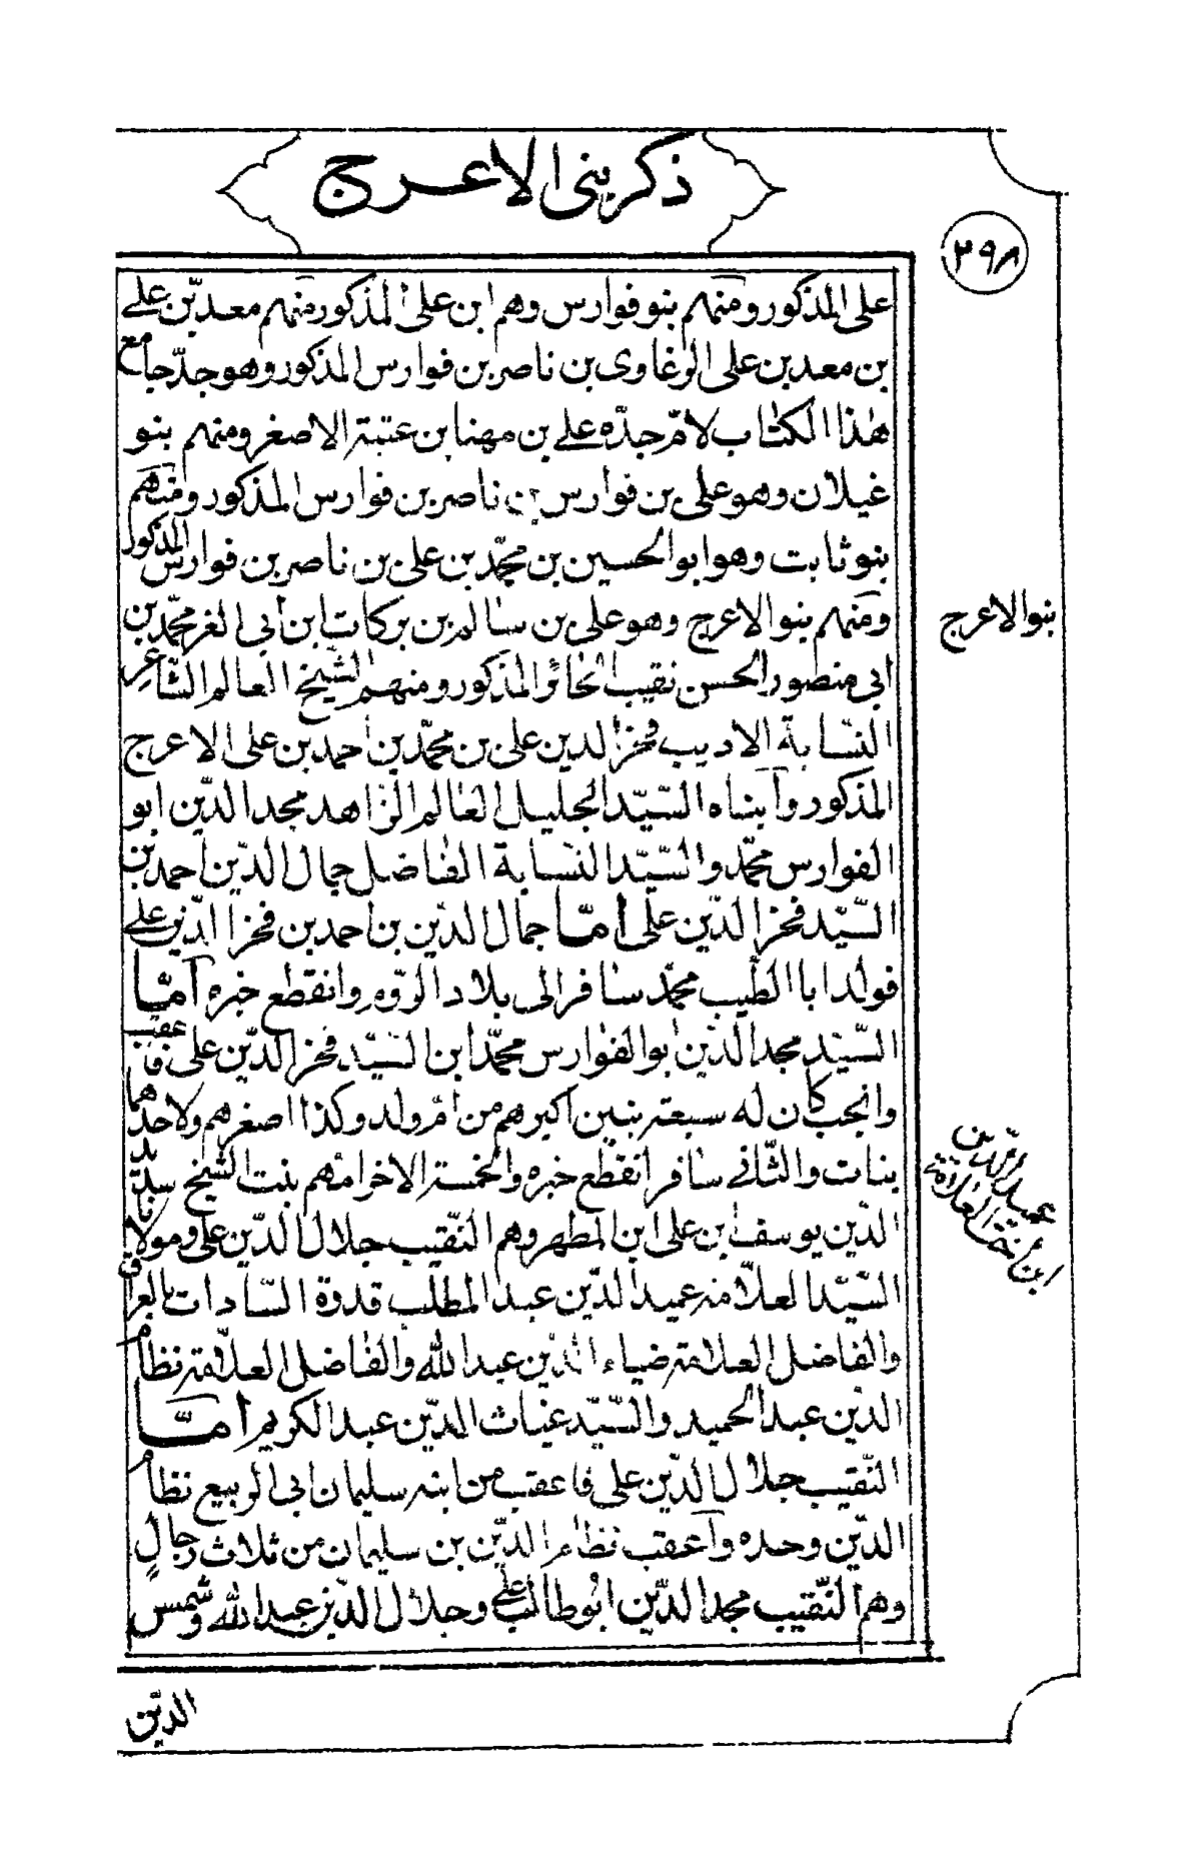 ذكر بنى الاعرج
٢٩٨
على المذكور ومنهم بنو فوارس وهم ابن على المذكور منهم معد بن على
بن معد بن على الوغاوى بن ناصر بن فوارس المذكور وهو جدّ جامع
هذا الكتاب لامّ جدّه على بن مهنا بن عتبة الاصغر ومنهم بنو
غيلان وهو على بن فوارس بن ناصر بن فوارس المذكور ومنهم
بنو ثابت وهو ابو الحسين بن محمّد بن على بن ناصر بن فوارس المذكور
ومنهم بنو الاعرج وهو على بن سالم بن بركات ابن ابى الغر محمّد بن
ابى منصور الحسن نقيب الحائر المذكور ومنهم الشّيخ العالم الشّاعر
النسّابة الاديب فخر الدين على بن محمّد بن احمد بن على الاعرج
المذكور وابناه السّيّد الجليل العالم الزّاهد مجد الدّين ابو
الفوارس محمّد والسّيّد النسّابة الفاضل جمال الدّين احمد بن
السّيّد فخر الدّين على امّا جمال الدّين بن احمد بن فخر الدّين على
فولد ابا الطّيب محمّد سافر الى بلاد الروم وانقطع خبره امّا
السّيّد مجد الدّين ابو الفوارس محمّد ابن السّيّد فخر الدّين على فاعقب
وانجب كان له سبعة بنين اكبرهم من امّ ولد وكذا اصغرهم ولاحدهما
بنات والثّانى سافر انقطع خبره والخمسة الاخر امهم بنت الشّيخ سديد
الدّين يوسف بن على ابن المطهر وهم النّقيب جلال الدّين على ومولانا
السّيّد العلّامة عميد الدّين عبد المطلب قدوة السّادات بالعراق
والفاضل العلامة ضياء الدين عبد الله والفاضل العلّامة نظام
الدّين عبد الحميد والسّيّد غياث الدّين عبد الكريم امّا
النّقيب جلال الدّين على فاعقب من ابنه سليمان ابى الربيع نظام
الدّين وحده واعقب نظام الدّين بن سليمان من ثلاث رجال
وهم النّقيب مجد الدّين ابو طالب على وجلال الدّين عبد الله وشمس
الدّين
بنو الاعرج
عميد الدّين
ابن اخت العلّامة